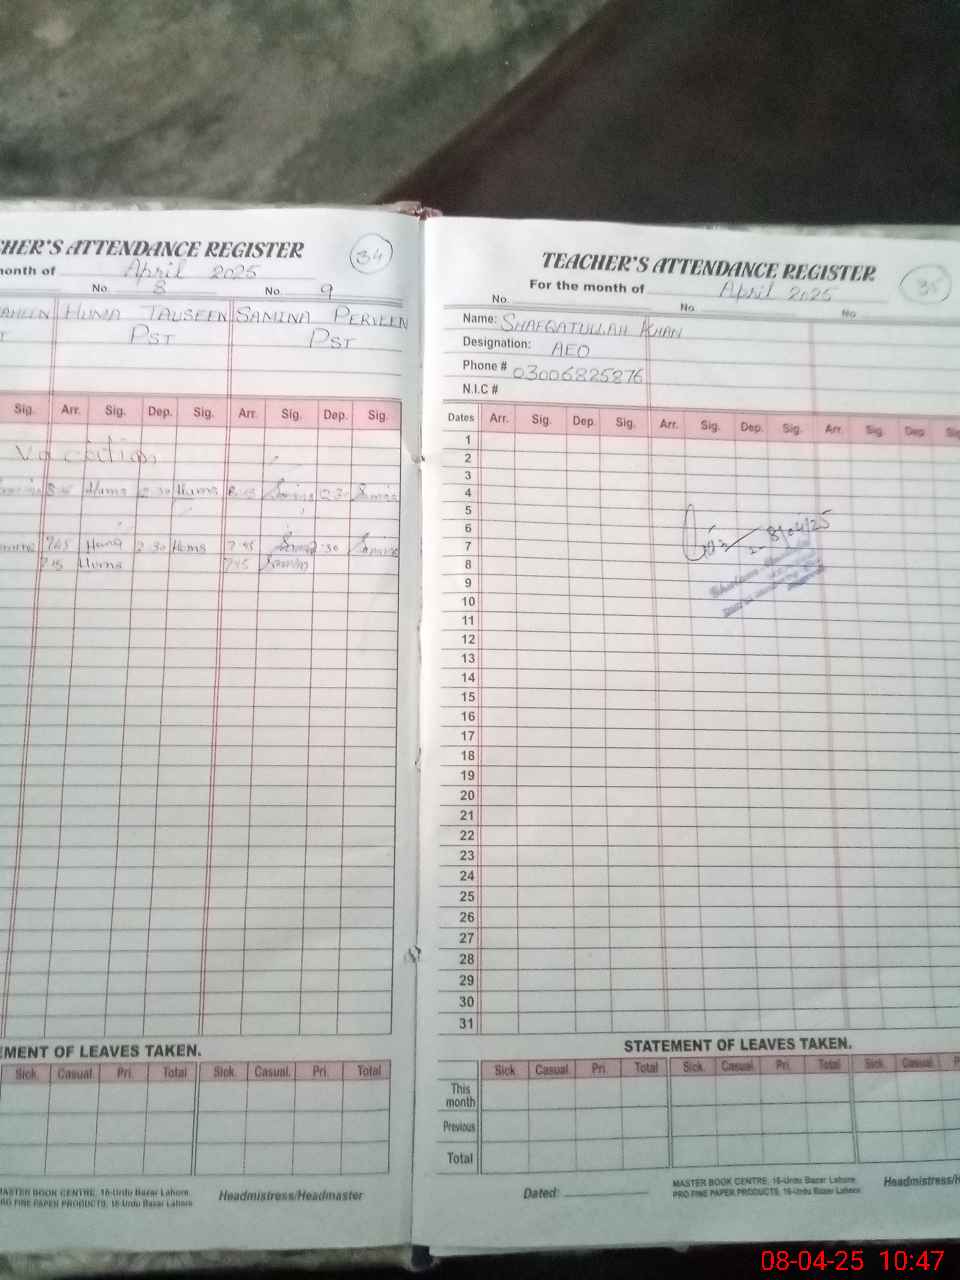 HER'S ATTENDANCE REGISTER
34
onth of April 2025
No. 8 No. 9
AHEEN HUMA TAUSEEN SAMINA PERVEEN
T PST PST
Sig. Arr. Sig. Dep. Sig. Arr. Sig. Dep. Sig.
Vacation
Huma 2 30 Huma
7 45 Huma 2 30 Huma 7 45 2:30
7 45 Huma 7 45
EMENT OF LEAVES TAKEN.
Sick. Casual. Pri. Total Sick. Casual. Pri. Total
MASTER BOOK CENTRE, 16-Urdu Bazar Lahore.
PRO FINE PAPER PRODUCTS, 16-Urdu Bazar Lahore.
Headmistress/Headmaster
TEACHER'S ATTENDANCE REGISTER
35
For the month of April 2025
No. No. No.
Name: SHAFQATULLAH KHAN
Designation: AEO
Phone # 03006825876
N.I.C #
Dates Arr. Sig. Dep. Sig. Arr. Sig. Dep. Sig. Arr. Sig. Dep. Sig
1
2
3
4
5
6
7
8
9
10
11
12
13
14
15
16
17
18
19
20
21
22
23
24
25
26
27
28
29
30
31
8/04/25
STATEMENT OF LEAVES TAKEN.
Sick. Casual. Pri. Total Sick. Casual. Pri. Total Sick. Casual. P
This month
Previous
Total
Dated:
MASTER BOOK CENTRE, 16-Urdu Bazar Lahore.
PRO FINE PAPER PRODUCTS, 16-Urdu Bazar Lahore.
Headmistress/H
08-04-25 10:47